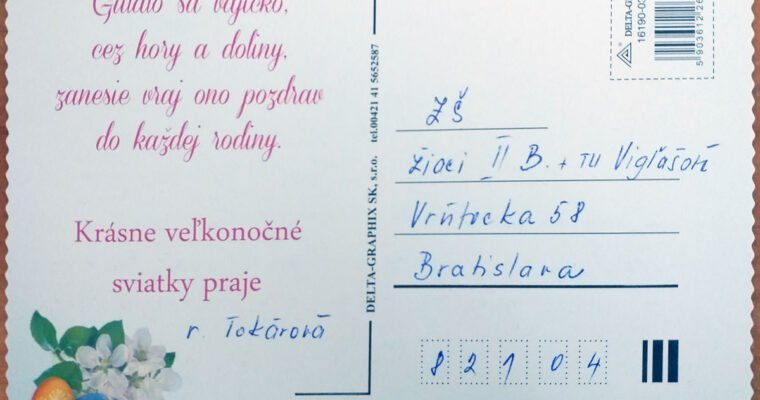 Guľalo sa vajíčko,
cez hory a doliny,
zanesie vraj ono pozdrav
do každej rodiny.
Krásne veľkonočné
sviatky praje
r. Tokárová
DELTA-GRAPHIX SK, s.r.o. tel.00421 41 5652587
DELTA-GR
16190-00
5 903612 26
ZŠ
žiaci II B. + TU Vigľašoví
Vrútocká 58
Bratislava
82104